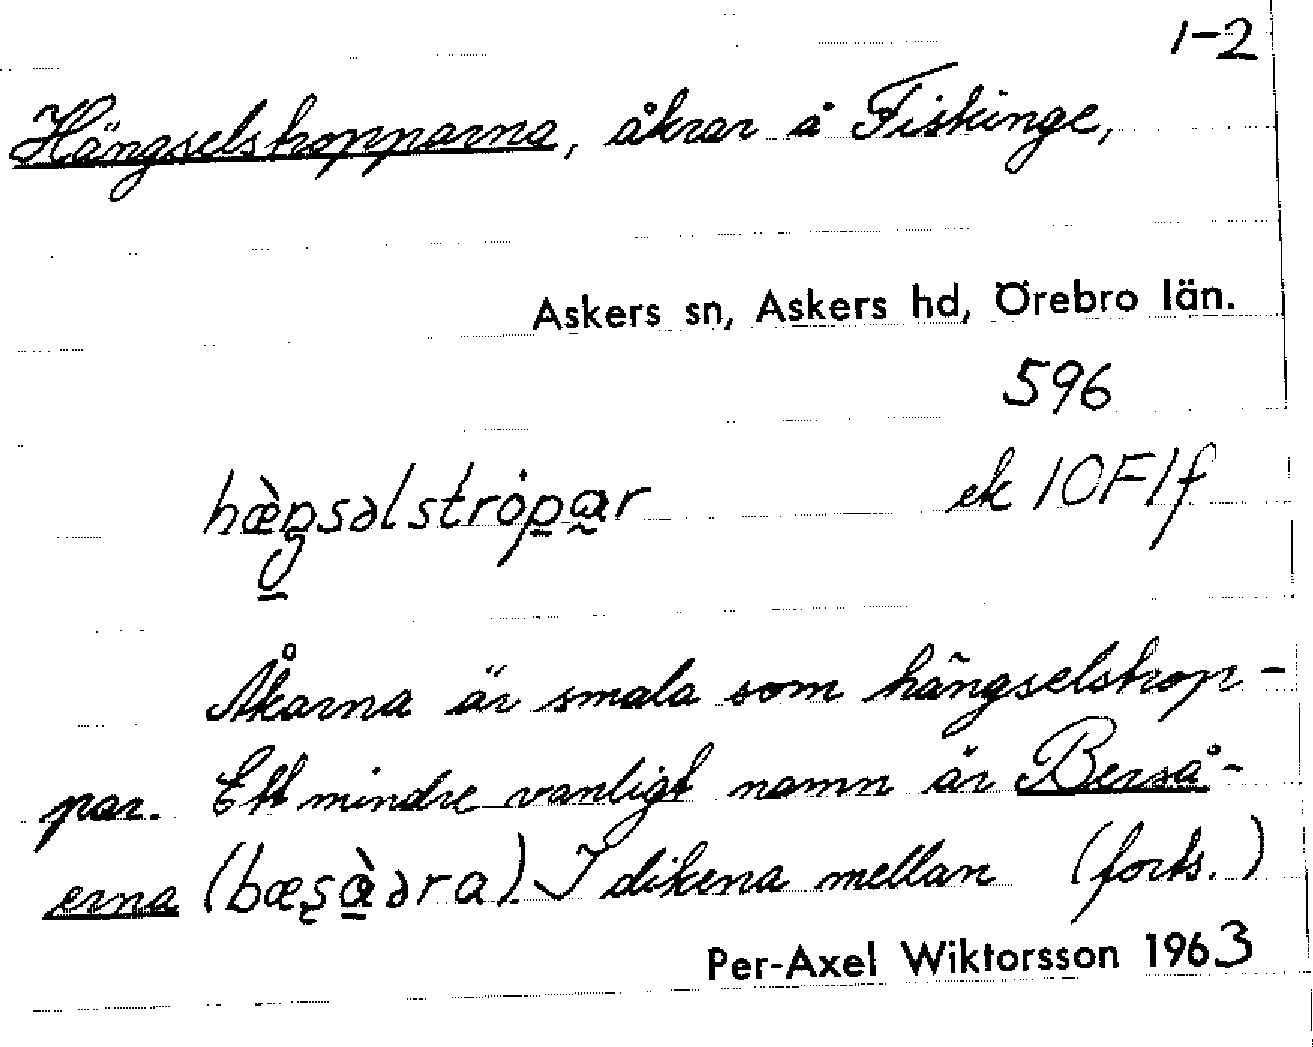 1-2
Hängselstropparna, åkrar å Fiskinge,
Askers sn, Askers hd, Örebro län.
596
hæ̀ŋsəlstròpar ek 10F1f
Åkarna är smala som hängselstrop-
par. Ett mindre vanligt namn är Berså-
erna (bæsàəra). I dikena mellan (forts.)
Per-Axel Wiktorsson 1963